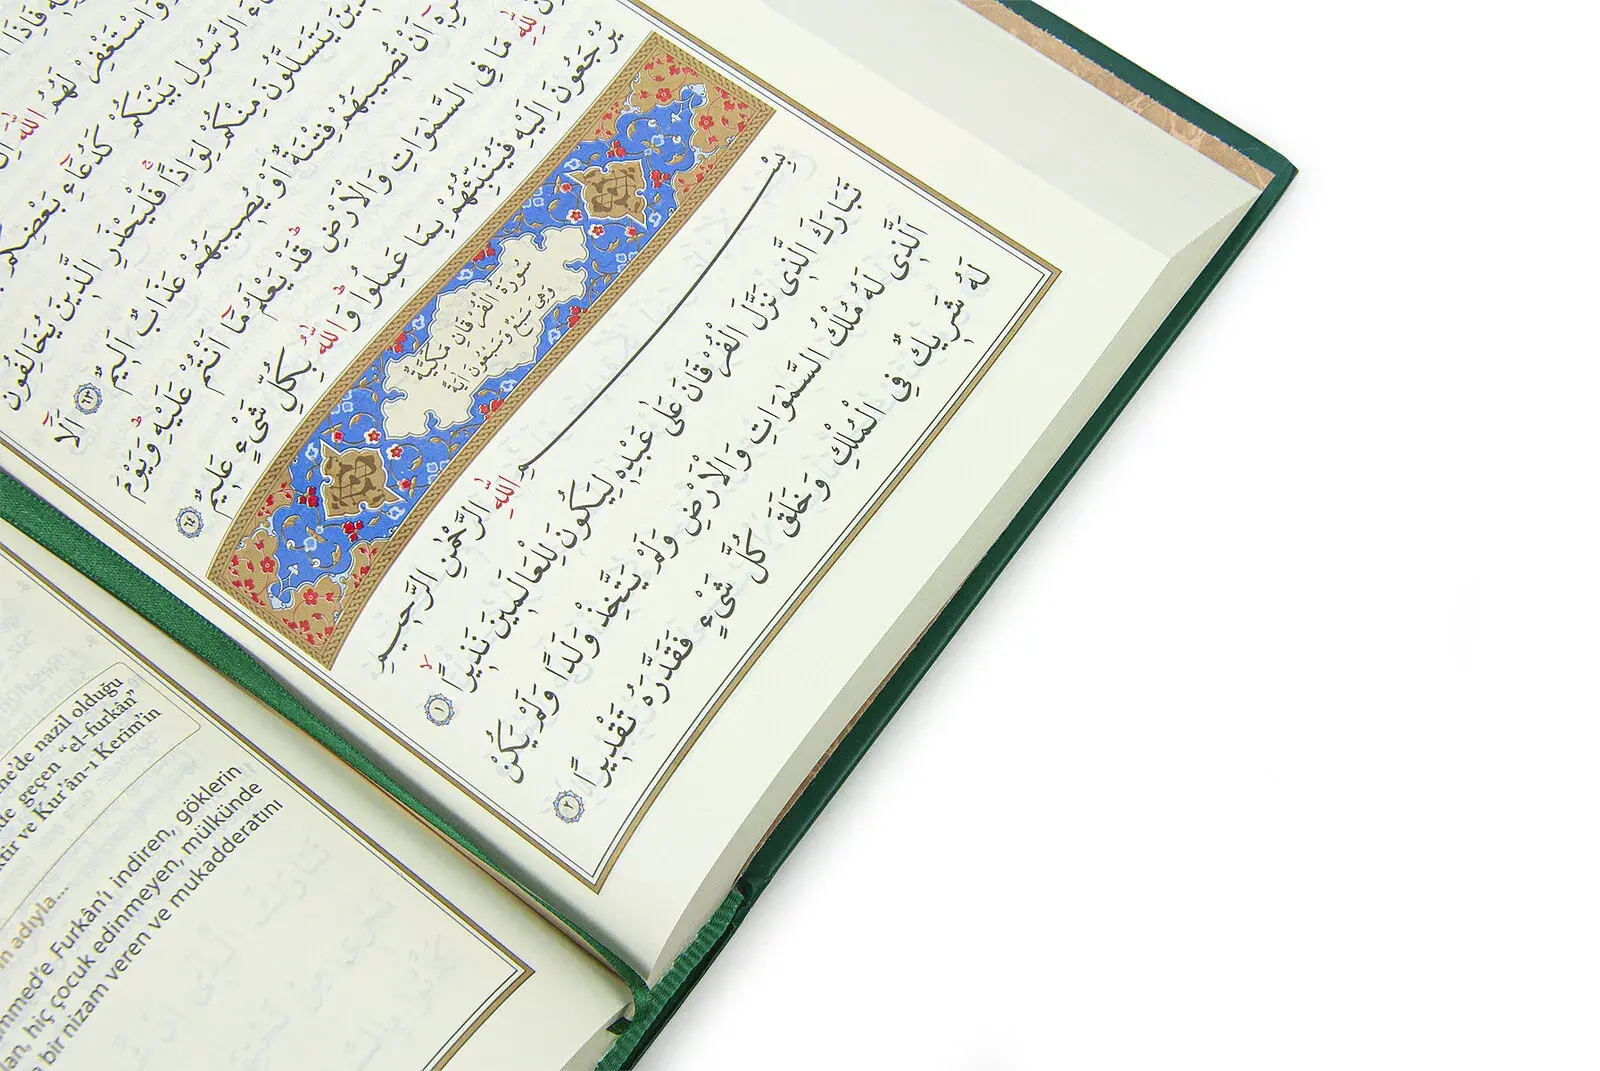 فَاِذَا
وَاسْتَغْفِرْ لَهُمُ اللّٰهَ
الرَّسُولِ بَيْنَكُمْ كَدُعَٓاءِ بَعْضِكُمْ
يَتَسَلَّلُونَ مِنْكُمْ لِوَاذًاۚ فَلْيَحْذَرِ الَّذٖينَ يُخَالِفُونَ
اَنْ تُصٖيبَهُمْ فِتْنَةٌ اَوْ يُصٖيبَهُمْ عَذَابٌ اَلٖيمٌ ٦٣ اَلَٓا
لِلّٰهِ مَا فِى السَّمٰوَاتِ وَالْاَرْضِ قَدْ يَعْلَمُ مَٓا اَنْتُمْ عَلَيْهِ وَيَوْمَ
يُرْجَعُونَ اِلَيْهِ فَيُنَبِّئُهُمْ بِمَا عَمِلُوا وَاللّٰهُ بِكُلِّ شَيْءٍ عَلٖيمٌ ٦٤
سُورَةُ الْفُرْقَانِ مَكِّيَّةٌ
وَهِىَ سَبْعٌ وَسَبْعُونَ اٰيَةً
بِسْمِ اللّٰهِ الرَّحْمٰنِ الرَّحٖيمِ
تَبَارَكَ الَّذٖى نَزَّلَ الْفُرْقَانَ عَلٰى عَبْدِهٖ لِيَكُونَ لِلْعَالَمٖينَ نَذٖيرًا ١
اَلَّذٖى لَهُ مُلْكُ السَّمٰوَاتِ وَالْاَرْضِ وَلَمْ يَتَّخِذْ وَلَدًا وَلَمْ يَكُنْ
لَهُ شَرٖيكٌ فِى الْمُلْكِ وَخَلَقَ كُلَّ شَيْءٍ فَقَدَّرَهُ تَقْدٖيرًا ٢
nazil olduğu
geçen “el-furkân”
ve Kur’ân-ı Kerîm’in
adıyla...
Furkân’ı indiren, göklerin
hiç çocuk edinmeyen, mülkünde
bir nizam veren ve mukadderatını